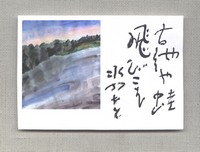 古池や蛙
飛びこむ
水の音